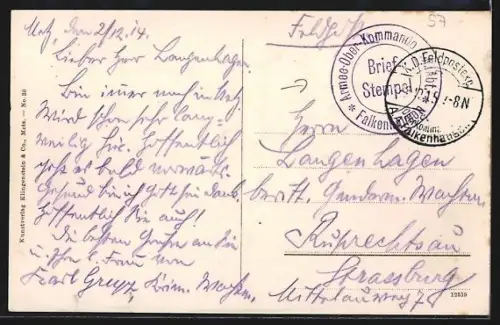 Metz, den 2/12.14.
Lieber Herr Langenhagen
Bin immer noch in Metz
Wird schon sehr lang-
weilig hier. Hoffentlich
geht es bald vorwärts.
Gesund bin ich Gott sei dank
Hoffentlich Sie auch!
Die besten Grüße an Sie
u. Ihre l. Frau von
Karl
57
Feldpost
Armee-Ober-Kommando
Brief
Stempel
Falkenhausen
K.D. Feldpostexp.
Falkenhausen
Herrn
Langenhagen
beritt. Gendarm. Wachtm.
Ruprechtsau
Strassburg
Mittelauweg 7
Kunstverlag Klingenstein & Co., Metz. — No. 30
12519